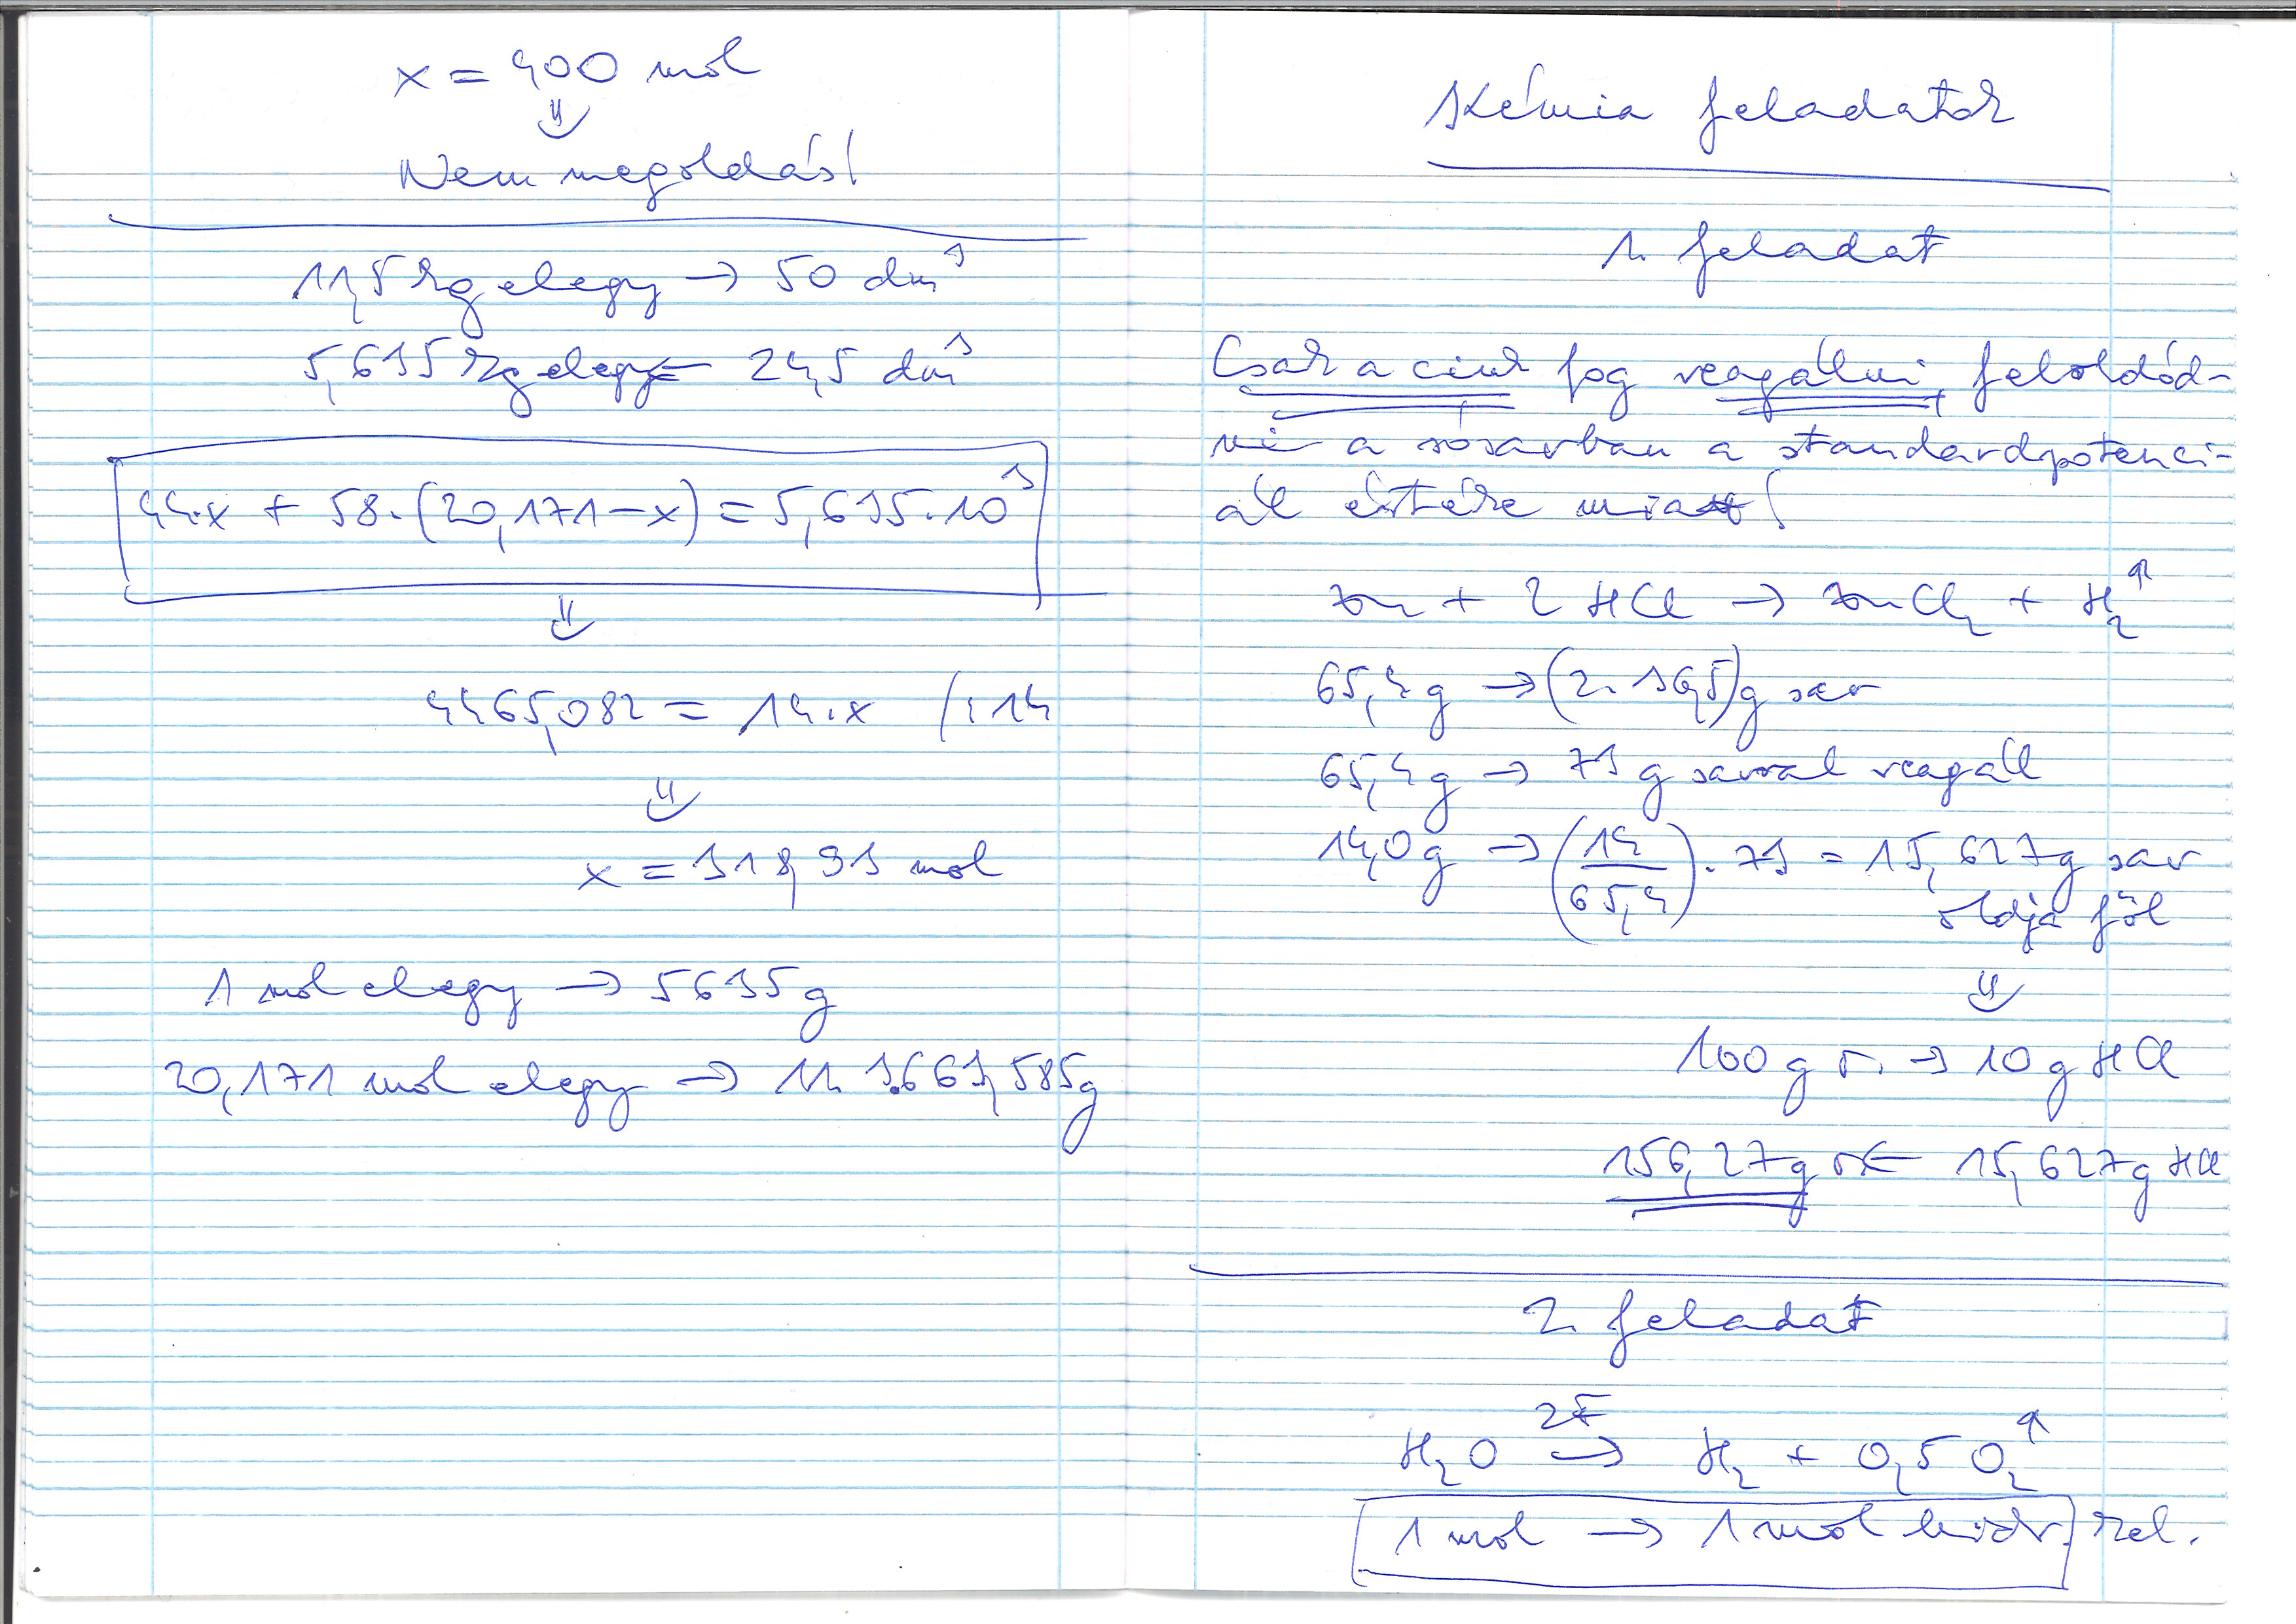 x = 400 mol
⇓
Nem megoldás!
11,5 kg elegy → 50 dm³
5,635 kg elegy ← 24,5 dm³
44·x + 58·(20,171-x) = 5,635·10³
⇓
4465,082 = 14·x /:14
⇓
x = 318,93 mol
1 mol elegy → 5635 g
20,171 mol elegy → 113.663,585 g
Kémia feladatok
1. feladat
Csak a cink fog reagálni, feloldód-
ni a sósavban a standardpotenci-
ál értéke miatt!
Zn + 2 HCl → ZnCl₂ + H₂↑
65,4 g → (2·36,5) g sav
65,4 g → 73 g savval reagál
14,0 g → (14/65,4)·73 = 15,627 g sav
oldja föl
⇓
100 g o. → 10 g HCl
156,27 g o. ← 15,627 g HCl
2. feladat
2F
H₂O → H₂ + 0,5 O₂↑
1 mol → 1 mol hidr. kel.